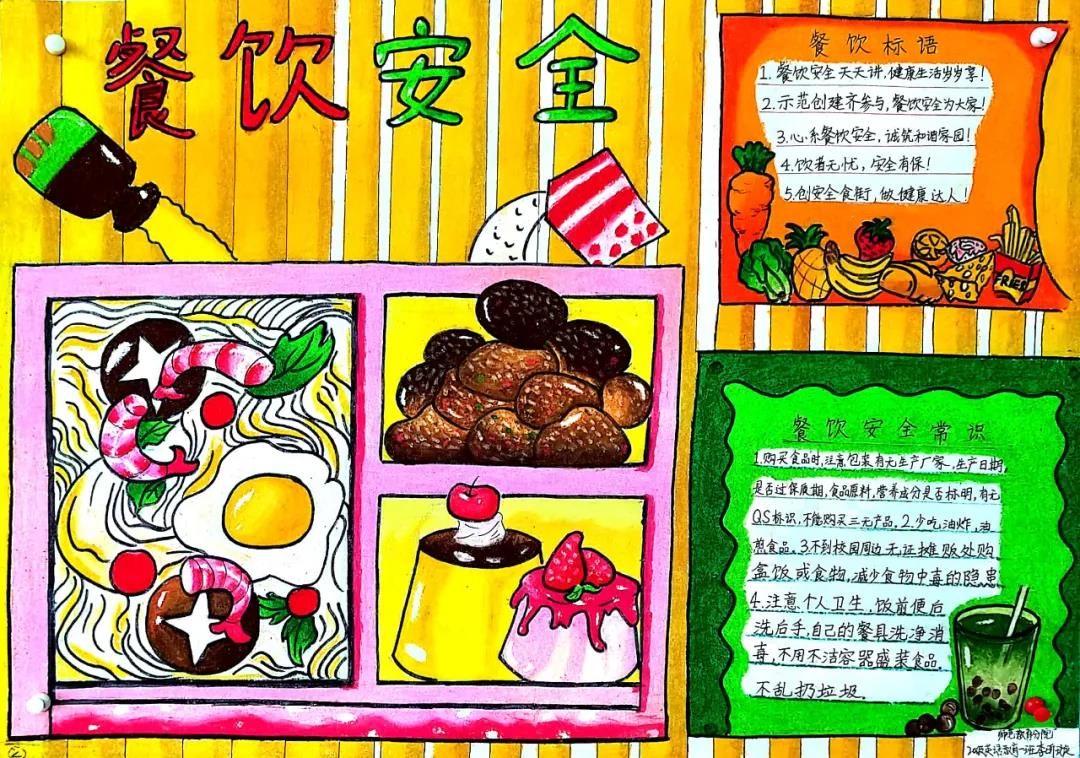 餐饮安全
餐饮标语
1.餐饮安全天天讲,健康生活岁岁享!
2.示范创建齐参与,餐饮安全为大家!
3.心系餐饮安全,诚筑和谐家园!
4.饮者无忧,安全有保!
5.创安全食街,做健康达人!
FRIES
餐饮安全常识
1.购买食品时,注意包装有无生产厂家,生产日期,
是否过保质期,食品原料,营养成分是否标明,有无
QS标识,不能购买三无产品,2.少吃油炸,油
煎食品。3.不到校园周边无证摊贩处购
盒饭或食物,减少食物中毒的隐患
4.注意个人卫生,饭前便后
洗后手,自己的餐具洗净消
毒,不用不洁容器盛装食品,
不乱扔垃圾.
师范教育分院